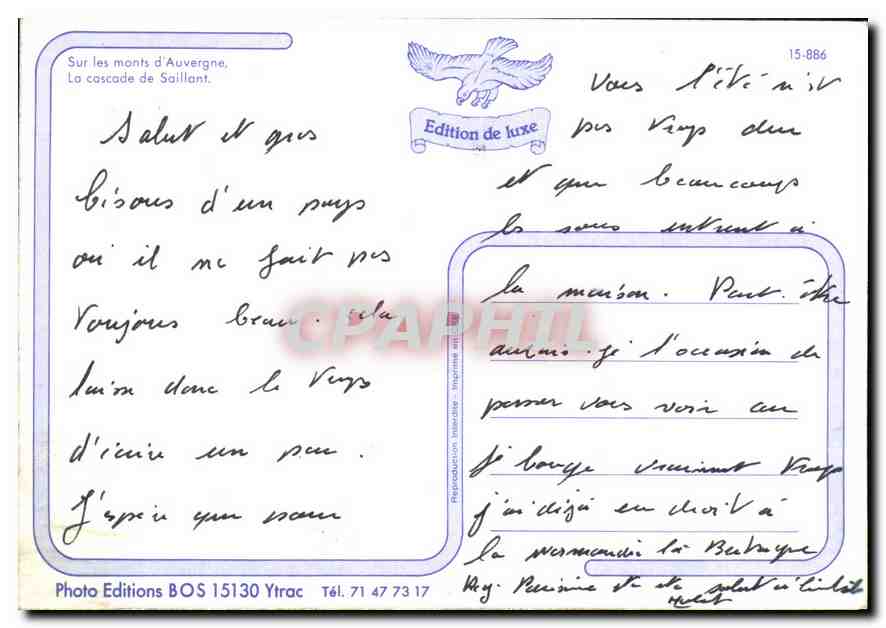 Sur les monts d'Auvergne,
La cascade de Saillant.
15-886
Edition de luxe
Salut et gros
bisous d'un pays
où il ne fait pas
toujours beau. Cela
laisse donc le temps
d'écrire un peu.
J'espère que pour
vous l'été n'est
pas trop dur
et que beaucoup
de sous entrent à
la maison. Peut-être
aurais-je l'occasion de
passer vous voir car
je bouge vraiment trop
j'ai déjà eu droit à
la Normandie la Bretagne
Reg. Parisienne et
salut à
Reproduction Interdite - Imprimé en
CPAPHIL
Photo Editions BOS 15130 Ytrac Tél. 71 47 73 17